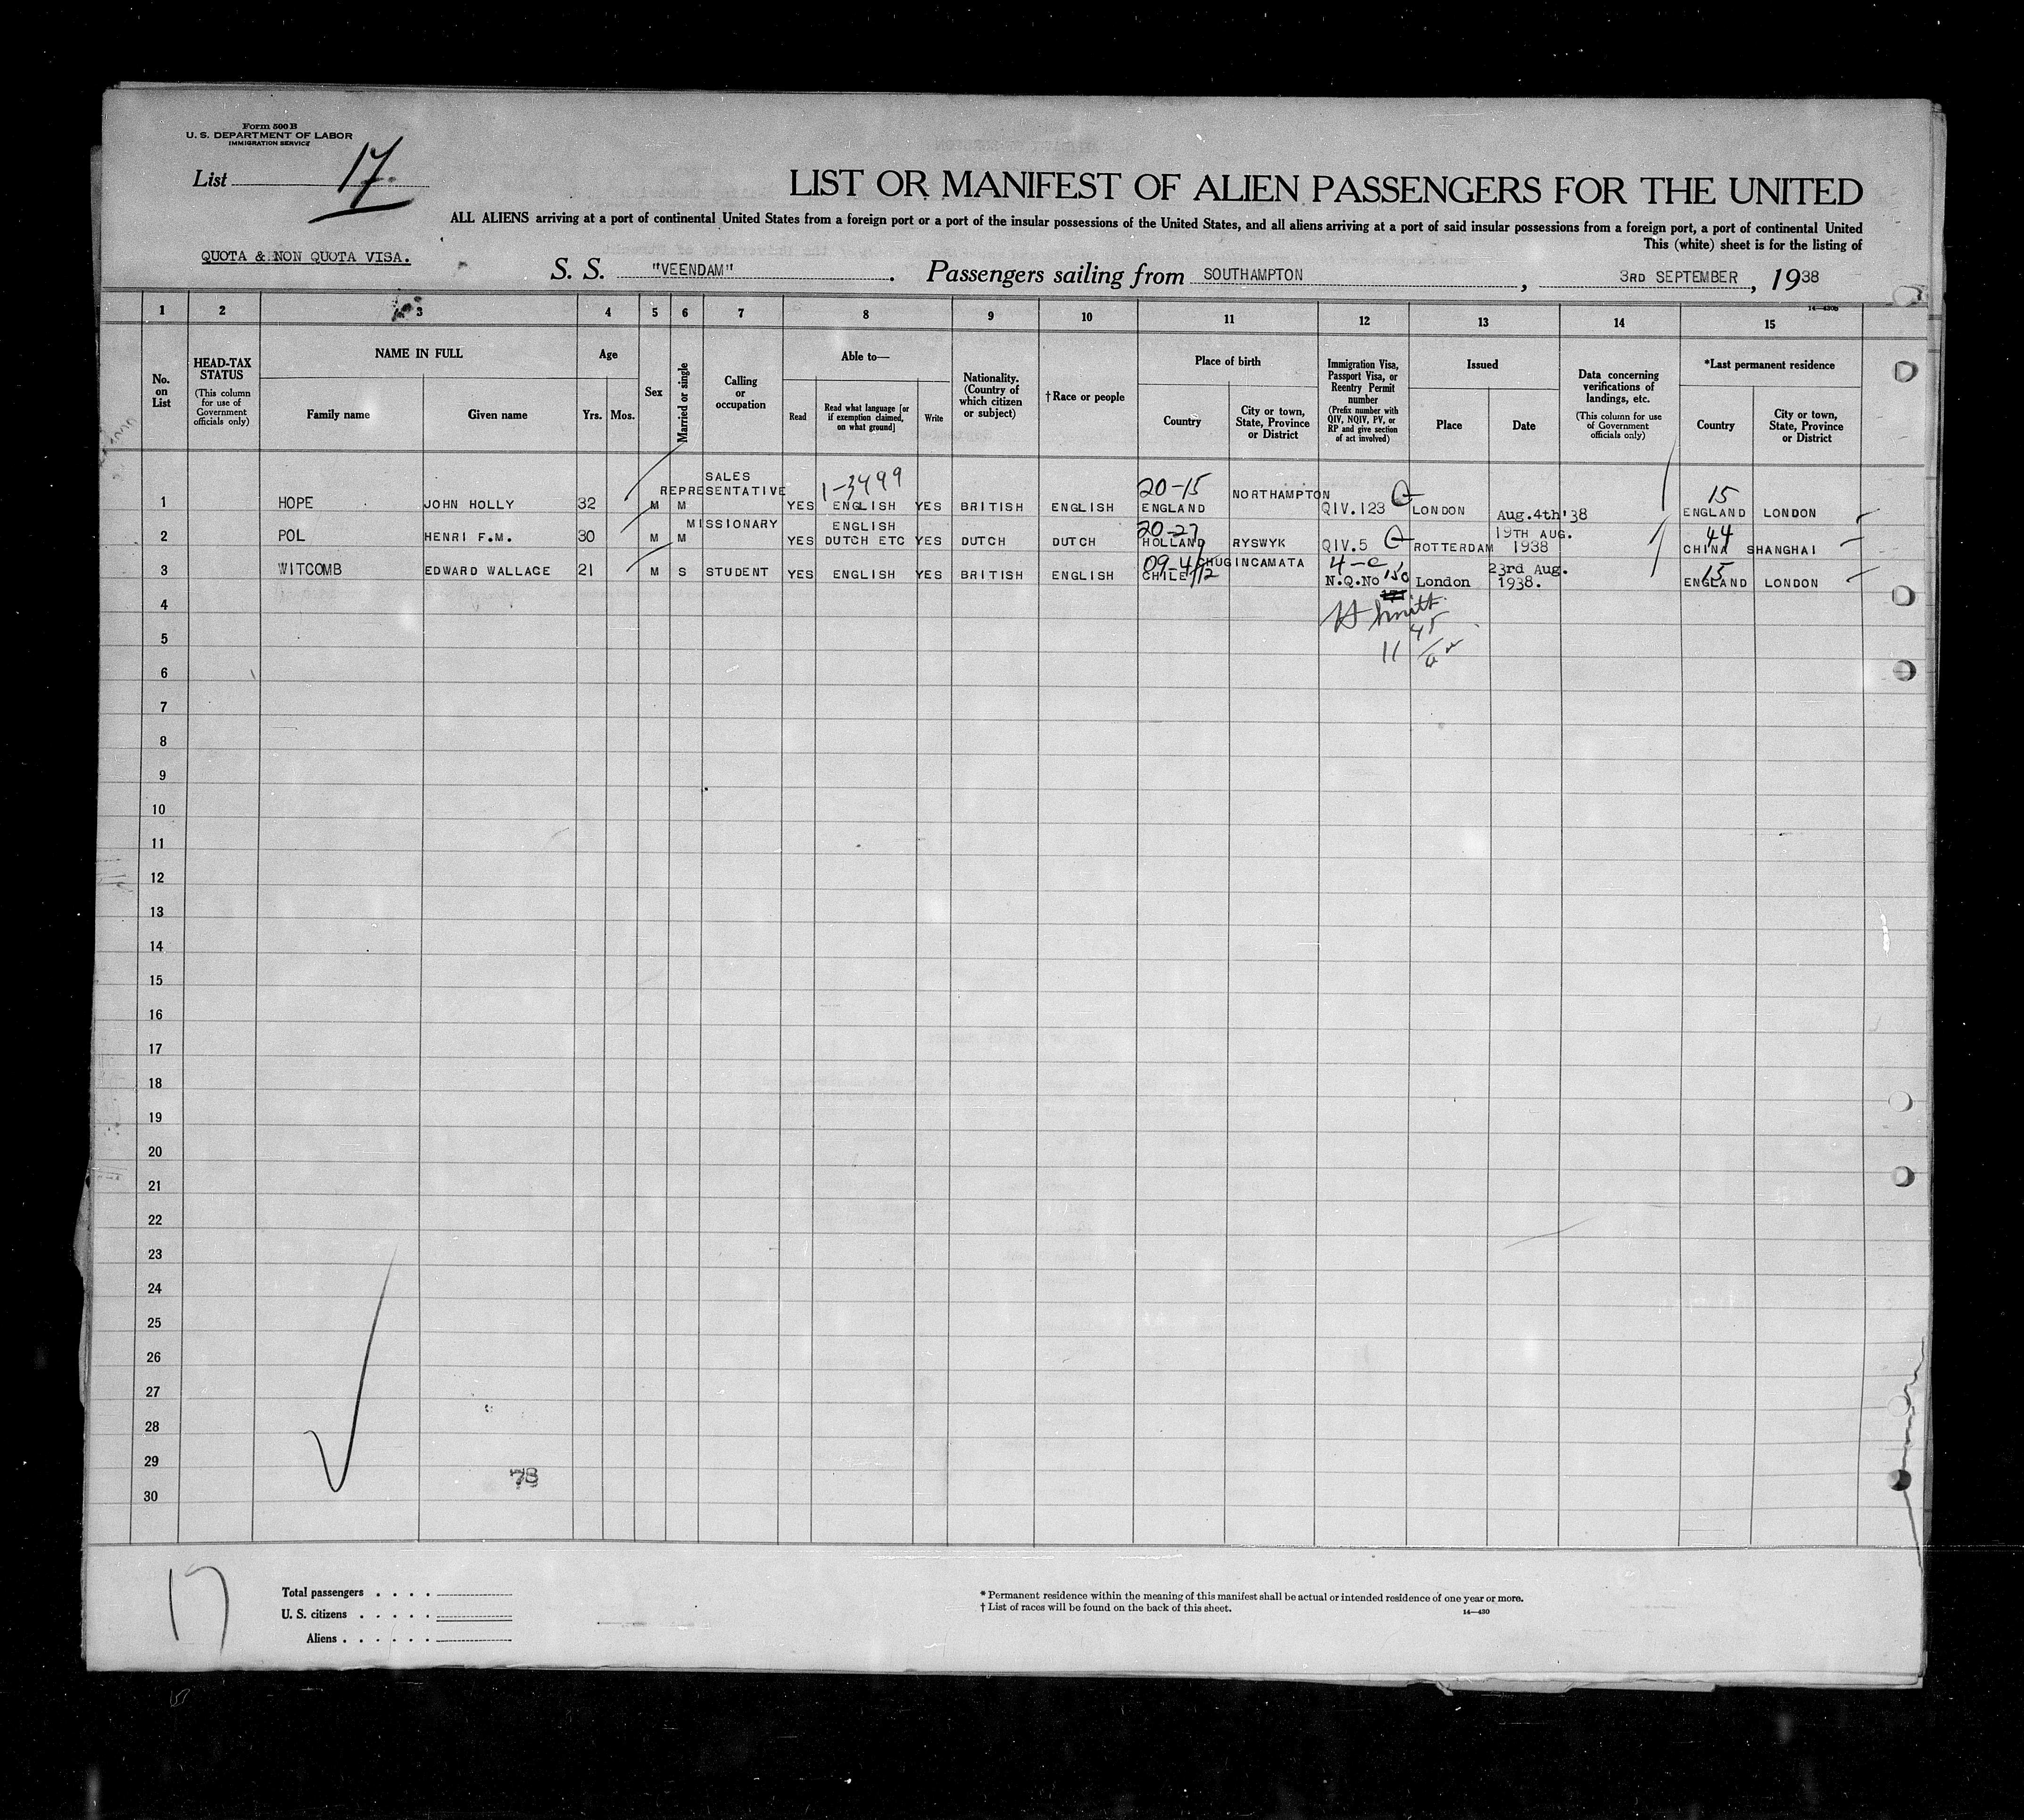 Form 500 B
U. S. DEPARTMENT OF LABOR
IMMIGRATION SERVICE
List 17.
LIST OR MANIFEST OF ALIEN PASSENGERS FOR THE UNITED
ALL ALIENS arriving at a port of continental United States from a foreign port or a port of the insular possessions of the United States, and all aliens arriving at a port of said insular possessions from a foreign port, a port of continental United
This (white) sheet is for the listing of
QUOTA & NON QUOTA VISA.
S. S. "VEENDAM". Passengers sailing from SOUTHAMPTON, 3RD SEPTEMBER, 1938
1 2 3 4 5 6 7 8 9 10 11 12 13 14 15
No. on List
HEAD-TAX STATUS
(This column for use of Government officials only)
NAME IN FULL
Family name
Given name
Age
Yrs. Mos.
Sex
Married or single
Calling or occupation
Able to—
Read
Read what language [or if exemption claimed, on what ground]
Write
Nationality. (Country of which citizen or subject)
†Race or people
Place of birth
Country
City or town, State, Province or District
Immigration Visa, Passport Visa, or Reentry Permit number
(Prefix number with QIV, NQIV, PV, or RP and give section of act involved)
Issued
Place
Date
Data concerning verifications of landings, etc.
(This column for use of Government officials only)
*Last permanent residence
Country
City or town, State, Province or District
1 HOPE JOHN HOLLY 32 M M SALES REPRESENTATIVE YES 1-3499 ENGLISH YES BRITISH ENGLISH 20-15 ENGLAND NORTHAMPTON QIV.123 LONDON Aug.4th'38 15 ENGLAND LONDON
2 POL HENRI F.M. 30 M M MISSIONARY YES ENGLISH DUTCH ETC YES DUTCH DUTCH 20-27 HOLLAND RYSWYK QIV.5 ROTTERDAM 19TH AUG. 1938 44 CHINA SHANGHAI
3 WITCOMB EDWARD WALLACE 21 M S STUDENT YES ENGLISH YES BRITISH ENGLISH 09-4/12 CHILE CHUGINCAMATA 4-e N.Q.No 150 London 23rd Aug. 1938. 15 ENGLAND LONDON
4
Smith
5
11
6
7
8
9
10
11
12
13
14
15
16
17
18
19
20
21
22
23
24
25
26
27
28
29
78
30
17
Total passengers . . . .
U. S. citizens . . . . .
Aliens . . . . . .
* Permanent residence within the meaning of this manifest shall be actual or intended residence of one year or more.
† List of races will be found on the back of this sheet.
14—430